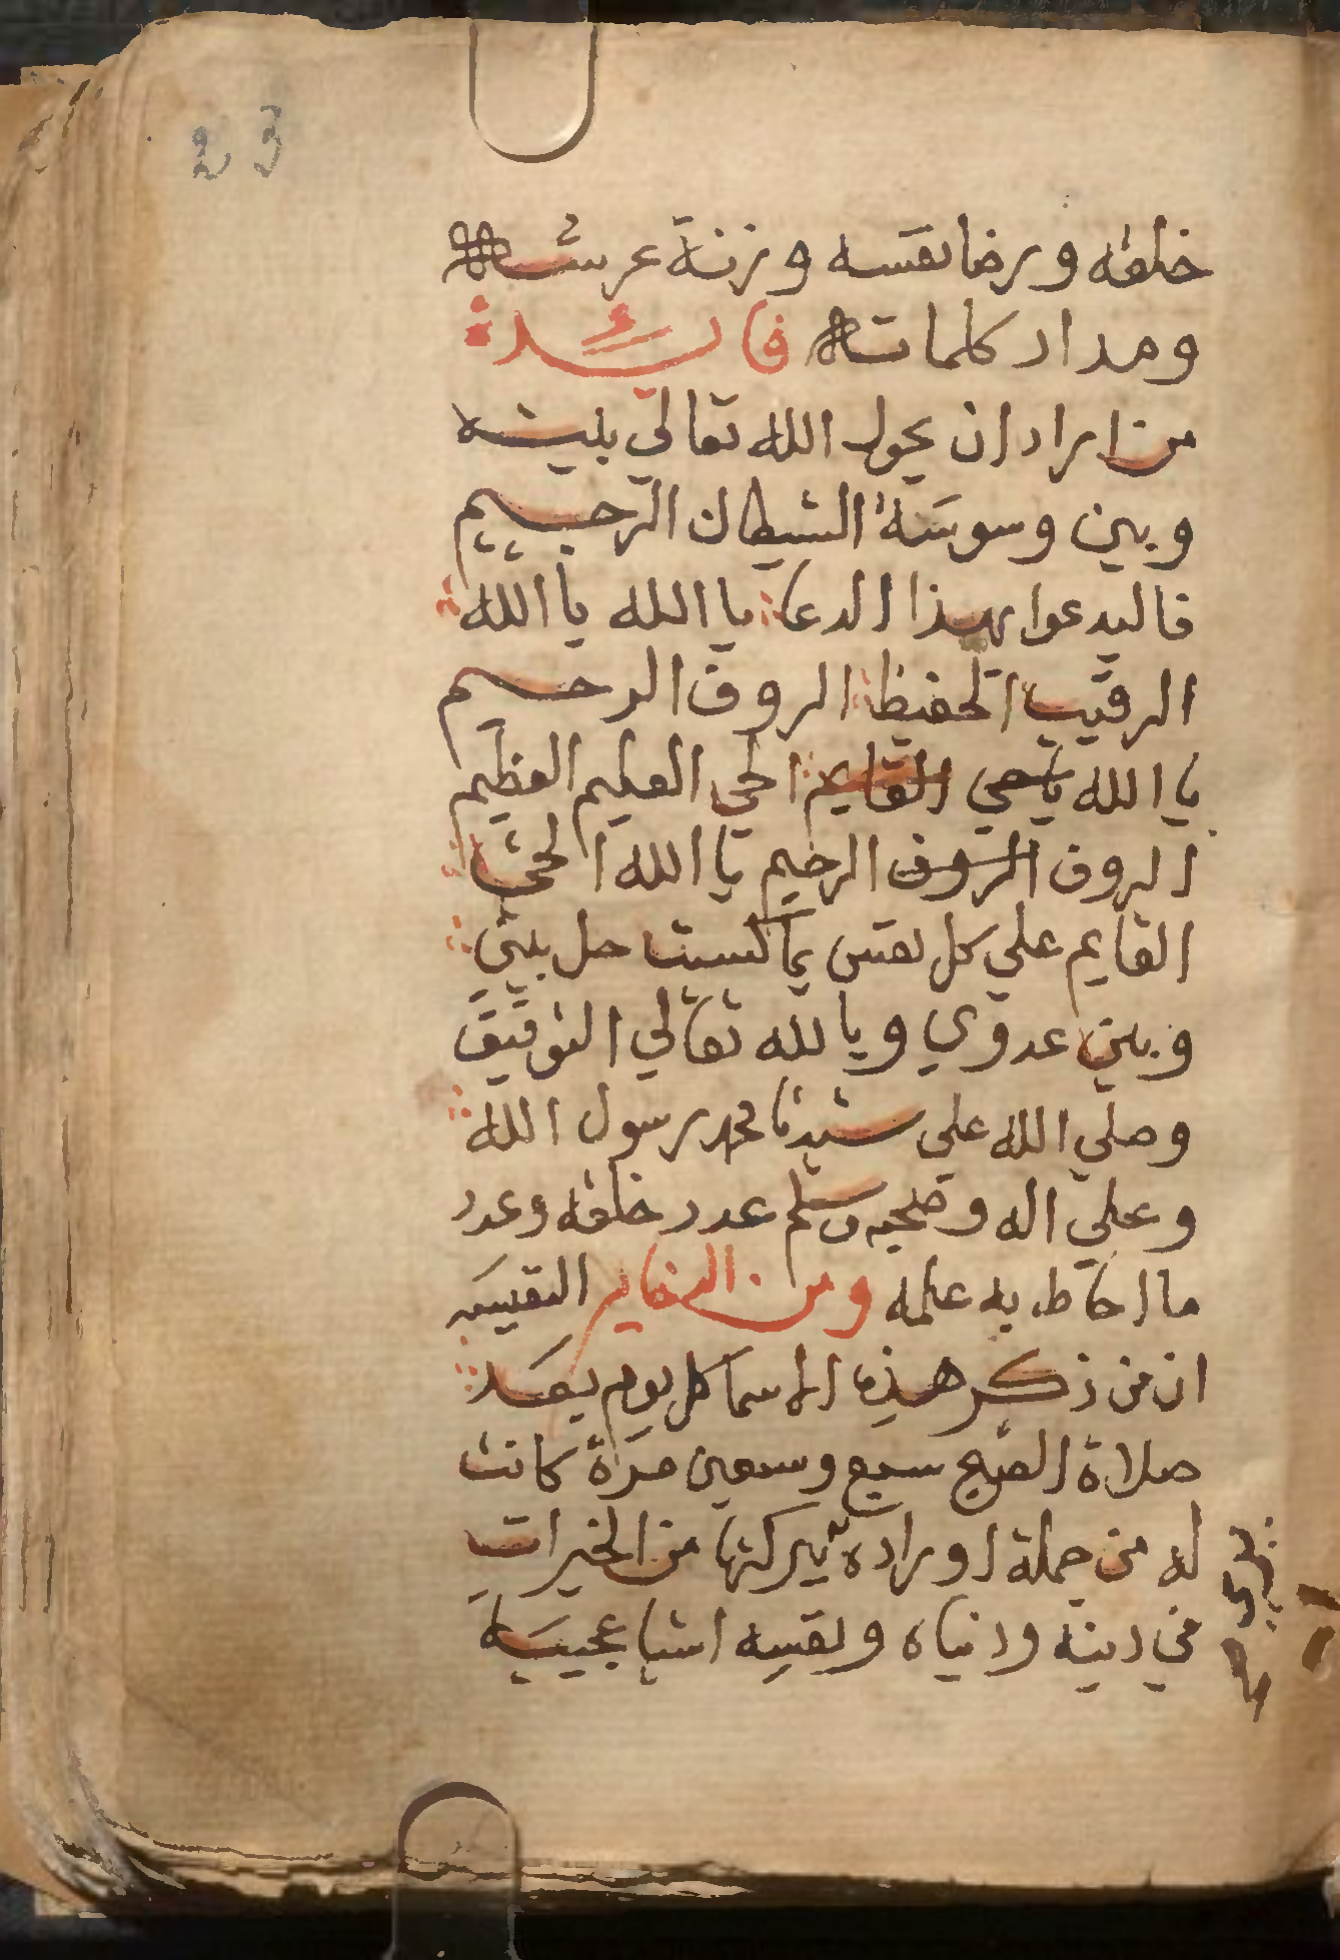 23
خلقه ورضا نفسه وزنة عرشه
ومداد كلماته فائدة
من اراد ان يحول الله تعالي بينه
وبين وسوسة الشيطان الرجيم
فاليدعوا بهذا الدعا يا الله يا الله
الرقيب الحفيظ الروف الرحيم
يا الله ياحي القايم الحي العليم العظيم
الروف الروف الرحيم يا الله الحي
القايم علي كل نفس بما كسبت حل بيني
وبين عدوي وبالله تعالي التوفيق
وصلي الله علي سيدنا محمد رسول الله
وعلي اله وصحبه وسلم عدد خلقه وعدد
ما احاط به علمه ومن الدخاير النفيسه
ان من ذكر هذه الاسما كل يوم بعد
صلاة الصبح سبع وسبعين مرة كانت
له من جملة اوراده يري بركتها من الخيرات
في دينه ودنياه ونفسه اشيا عجيبه